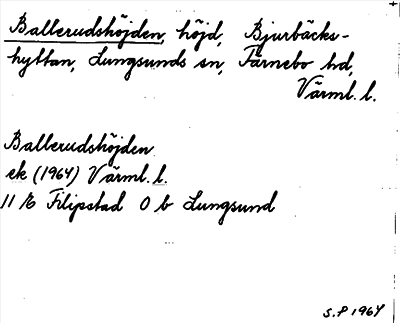 Ballerudshöjden, höjd, Bjurbäcks-
hyttan, Lungsunds sn, Färnebo hd,
Värml. l.
Ballerudshöjden
ek (1964) Värml. l.
11 E Filipstad 0 b Lungsund
S.P 1964